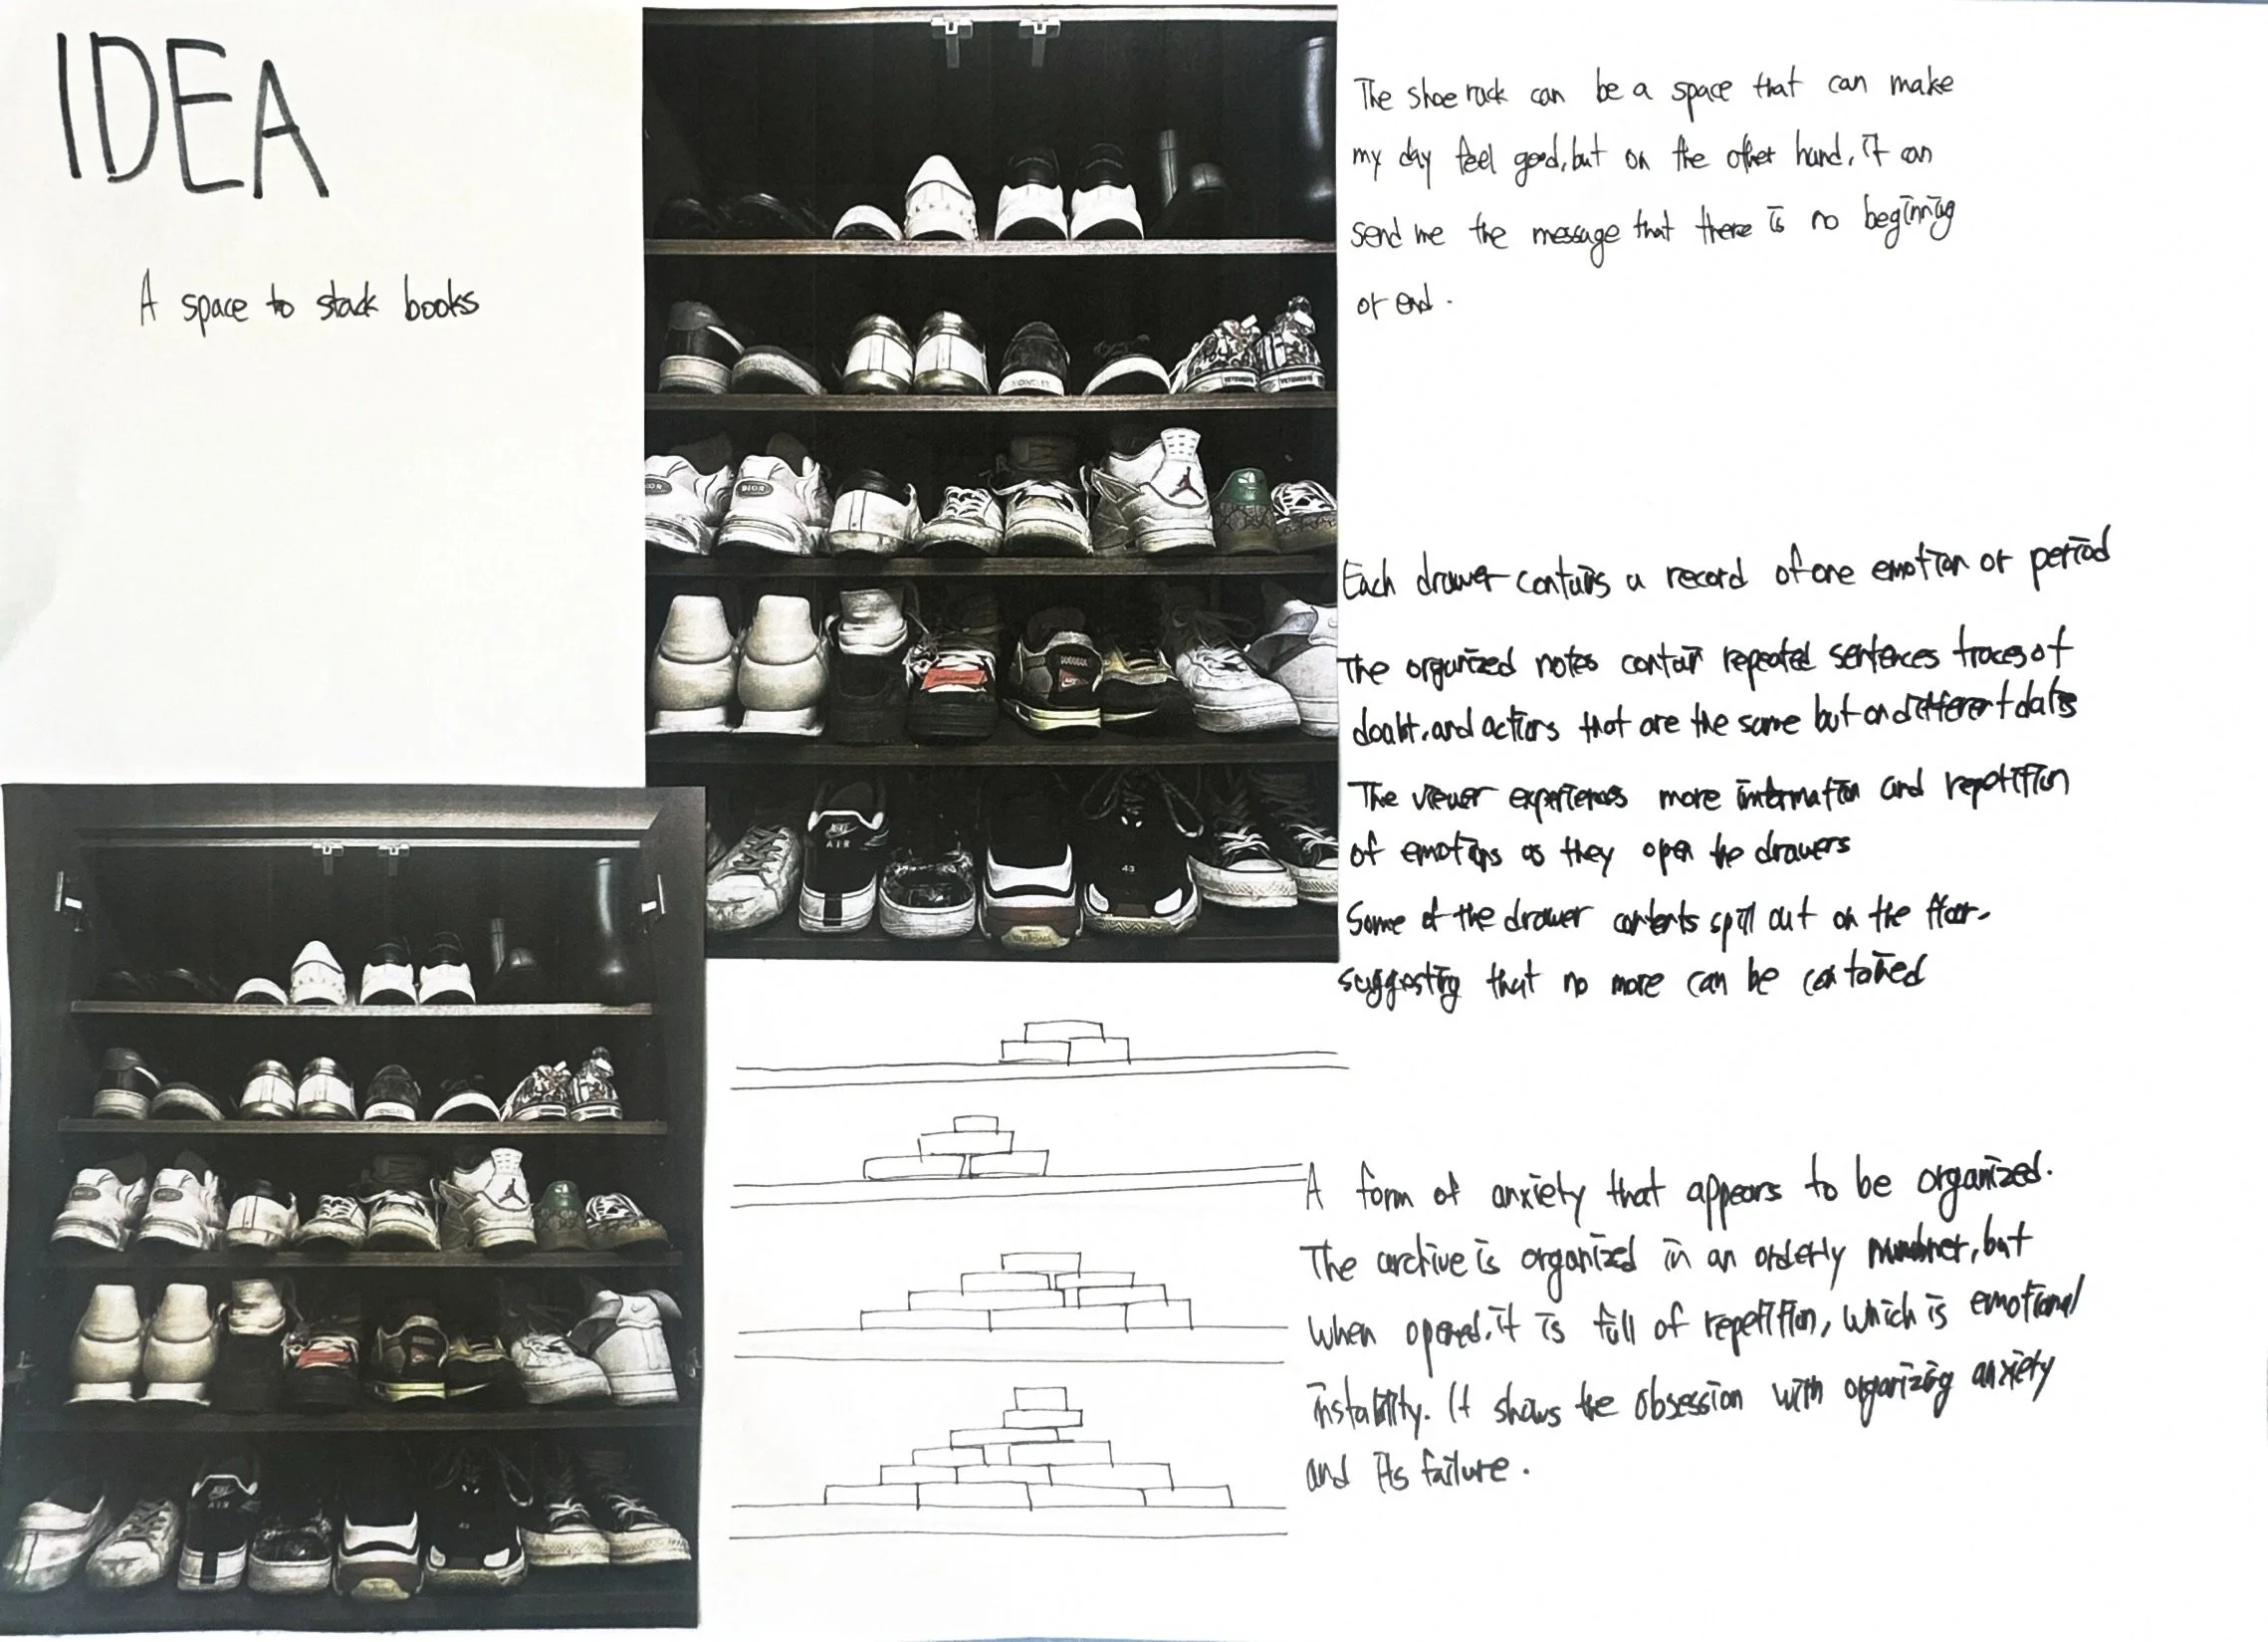 IDEA
A space to stack books
The shoe rack can be a space that can make
my day feel good, but on the other hand, it can
send me the message that there is no beginning
or end.
Each drawer contains a record of one emotion or period
The organized notes contain repeated sentences traces of
doubt, and actions that are the same but on different dates
The viewer experiences more information and repetition
of emotions as they open the drawers
Some of the drawer contents spill out on the floor.
suggesting that no more can be contained
A form of anxiety that appears to be organized.
The archive is organized in an orderly manner, but
when opened, it is full of repetition, which is emotional
instability. It shows the obsession with organizing anxiety
and its failure.
MONCLER
VETEMENTS
VETEMENTS
DIOR
AIR
43
AIR